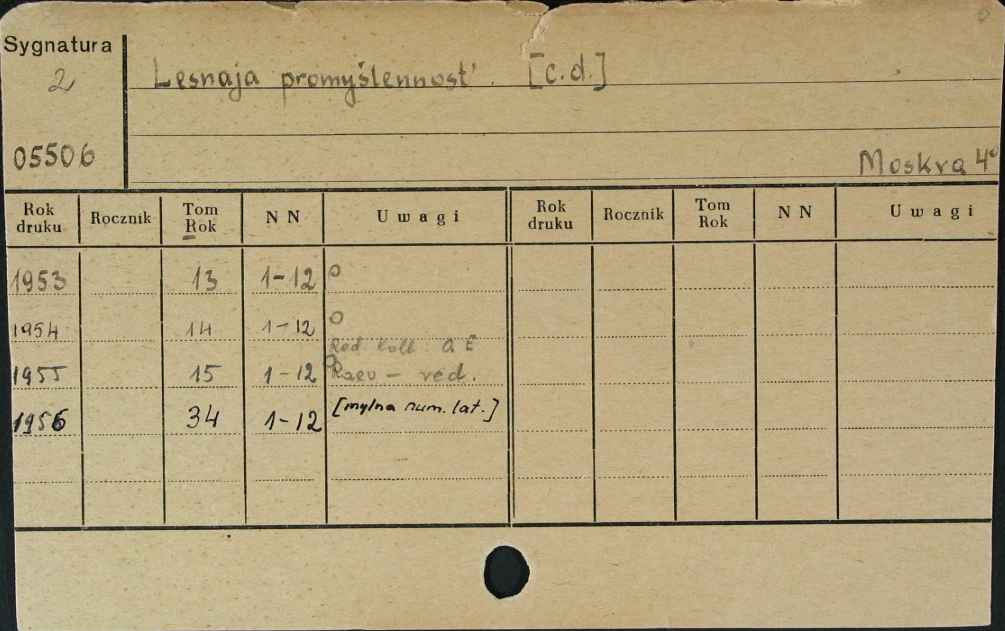 Sygnatura
2
Lesnaja promyšlennost'. [c.d.]
05506
Moskva 4°
Rok druku Rocznik Tom Rok NN Uwagi Rok druku Rocznik Tom Rok NN Uwagi
1953 13 1-12 o
1954 14 1-12 o
Red. koll. O. E
1955 15 1-12 Raev - red.
1956 34 1-12 [mylna num. lat.]